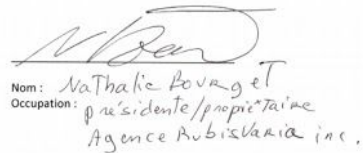 Nom : Nathalie Bourget
Occupation : présidente/propiétaire
Agence RubisVaria inc.